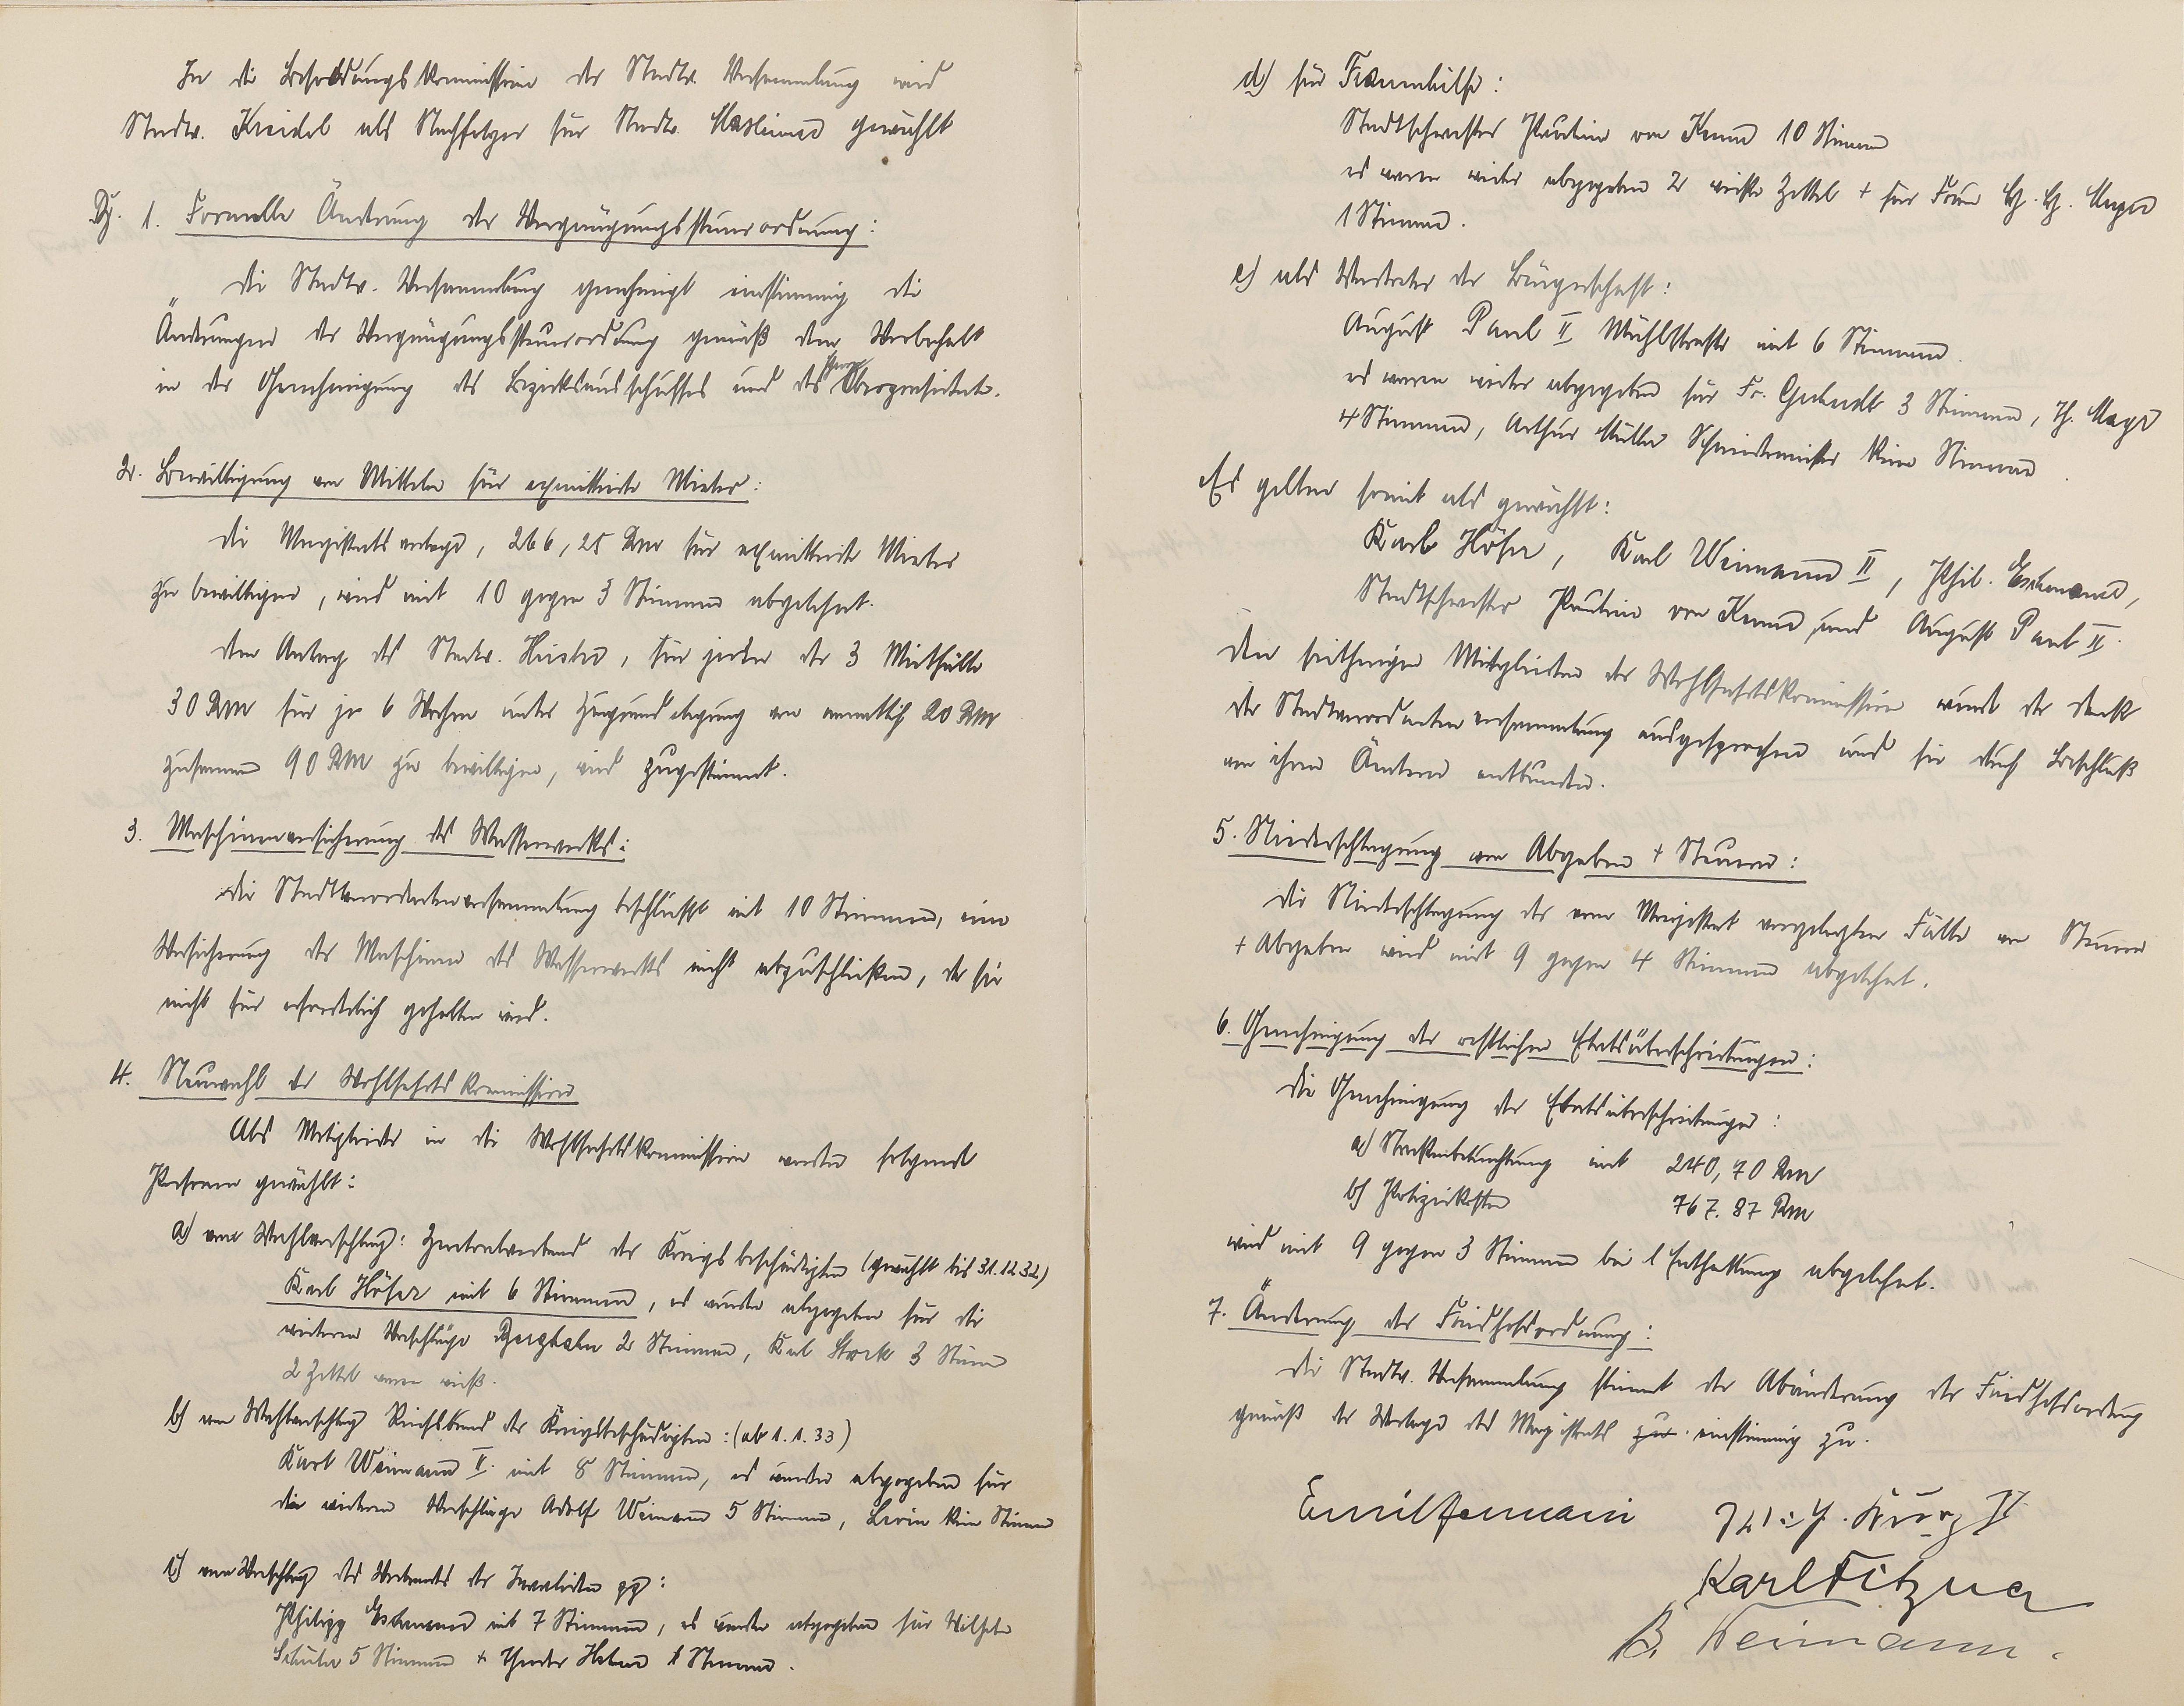 In die Besoldungskommission der Stadtv. Versammlung wird
Stadtv. Kreidel als Nachfolger für Stadtv. gewählt
1. Formelle Änderung der Vergnügungssteuerordnung:
Die Stadtv. Versammlung genehmigt einstimmig die
Änderungen der Vergnügungssteuerordnung gemäß dem Vorbehalt
in der Genehmigung des Bezirksausschusses und des Oberpräsidenten.
2. Bewilligung von Mitteln für exmittierte Mieter:
Die Magistratsvorlage, 266,25 RM für exmittierte Mieter
zu bewilligen, wird mit 10 gegen 3 Stimmen abgelehnt.
Dem Antrag des Stadtv. , für jeden der 3 Mietfälle
30 RM für je 6 Wochen unter Zugrundelegung von monatlich 20 RM
zusammen 90 RM zu bewilligen, wird zugestimmt.
3. Maschinenversicherung des Wasserwerks:
Die Stadtverordnetenversammlung beschließt mit 10 Stimmen, eine
Versicherung der Maschinen des Wasserwerks nicht abzuschließen, da sie
nicht für erforderlich gehalten wird.
4. Neuwahl der Wohlfahrtskommission
Als Mitglieder in die Wohlfahrtskommission werden folgende
Personen gewählt:
a) vom Wahlvorschlag: Zentralverband der Kriegsbeschädigten (gewählt bis 31.12.32)
Karl Höser mit 6 Stimmen, es wurden abgegeben für die
weiteren Vorschläge Berghahn 2 Stimmen, Karl Stork 3 Stimmen
2 Zettel waren weiß.
b) vom Wahlvorschlag Reichsbund der Kriegsbeschädigten: (ab 1.1.33)
Karl Weimann II. mit 8 Stimmen, es wurden abgegeben für
die weiteren Vorschläge Adolf Weimann 5 Stimmen, keine Stimme
c) vom Vorschlag des Verbandes der Invaliden pp:
Philipp Eschmann mit 7 Stimmen, es wurden abgegeben für Wilhelm
5 Stimmen + Theodor 1 Stimme.
d) für Frauenhilfe:
Stadtschwester Pauline von 10 Stimmen
es waren weiter abgegeben 2 weiße Zettel + für Frau Mayer
1 Stimme.
e) als Vertreter der Bürgerschaft:
August Paul II Mühlstraße mit 6 Stimmen.
es waren weiter abgegeben für Fr. 3 Stimmen, Th. Mayer
4 Stimmen, Arthur Müller Schreinermeister keine Stimme.
Es gelten somit als gewählt:
Karl Höser, Karl Weimann II, Phil. Eschmann,
Stadtschwester Pauline von und August Paul II.
Den seitherigen Mitgliedern der Wohlfahrtskommission wurde der Dank
der Stadtverordnetenversammlung ausgesprochen und sie durch Beschluß
von ihren Ämtern entbunden.
5. Niederschlagung von Abgaben + Steuern:
Die Niederschlagung der vom Magistrat vorgelegten Fälle von Steuern
+ Abgaben wird mit 9 gegen 4 Stimmen abgelehnt.
6. Genehmigung der restlichen Etatsüberschreitungen:
Die Genehmigung der Etatsüberschreitungen:
a) Straßenbeleuchtung mit 240,70 RM
b) Polizeikosten 767.87 RM
wird mit 9 gegen 3 Stimmen bei 1 Enthaltung abgelehnt.
7. Änderung der Friedhofsordnung:
Die Stadtv. Versammlung stimmt der Abänderung der Friedhofsordnung
gemäß der Vorlage des Magistrats zu einstimmig zu.
Karl Fitzner
B. Weimann.